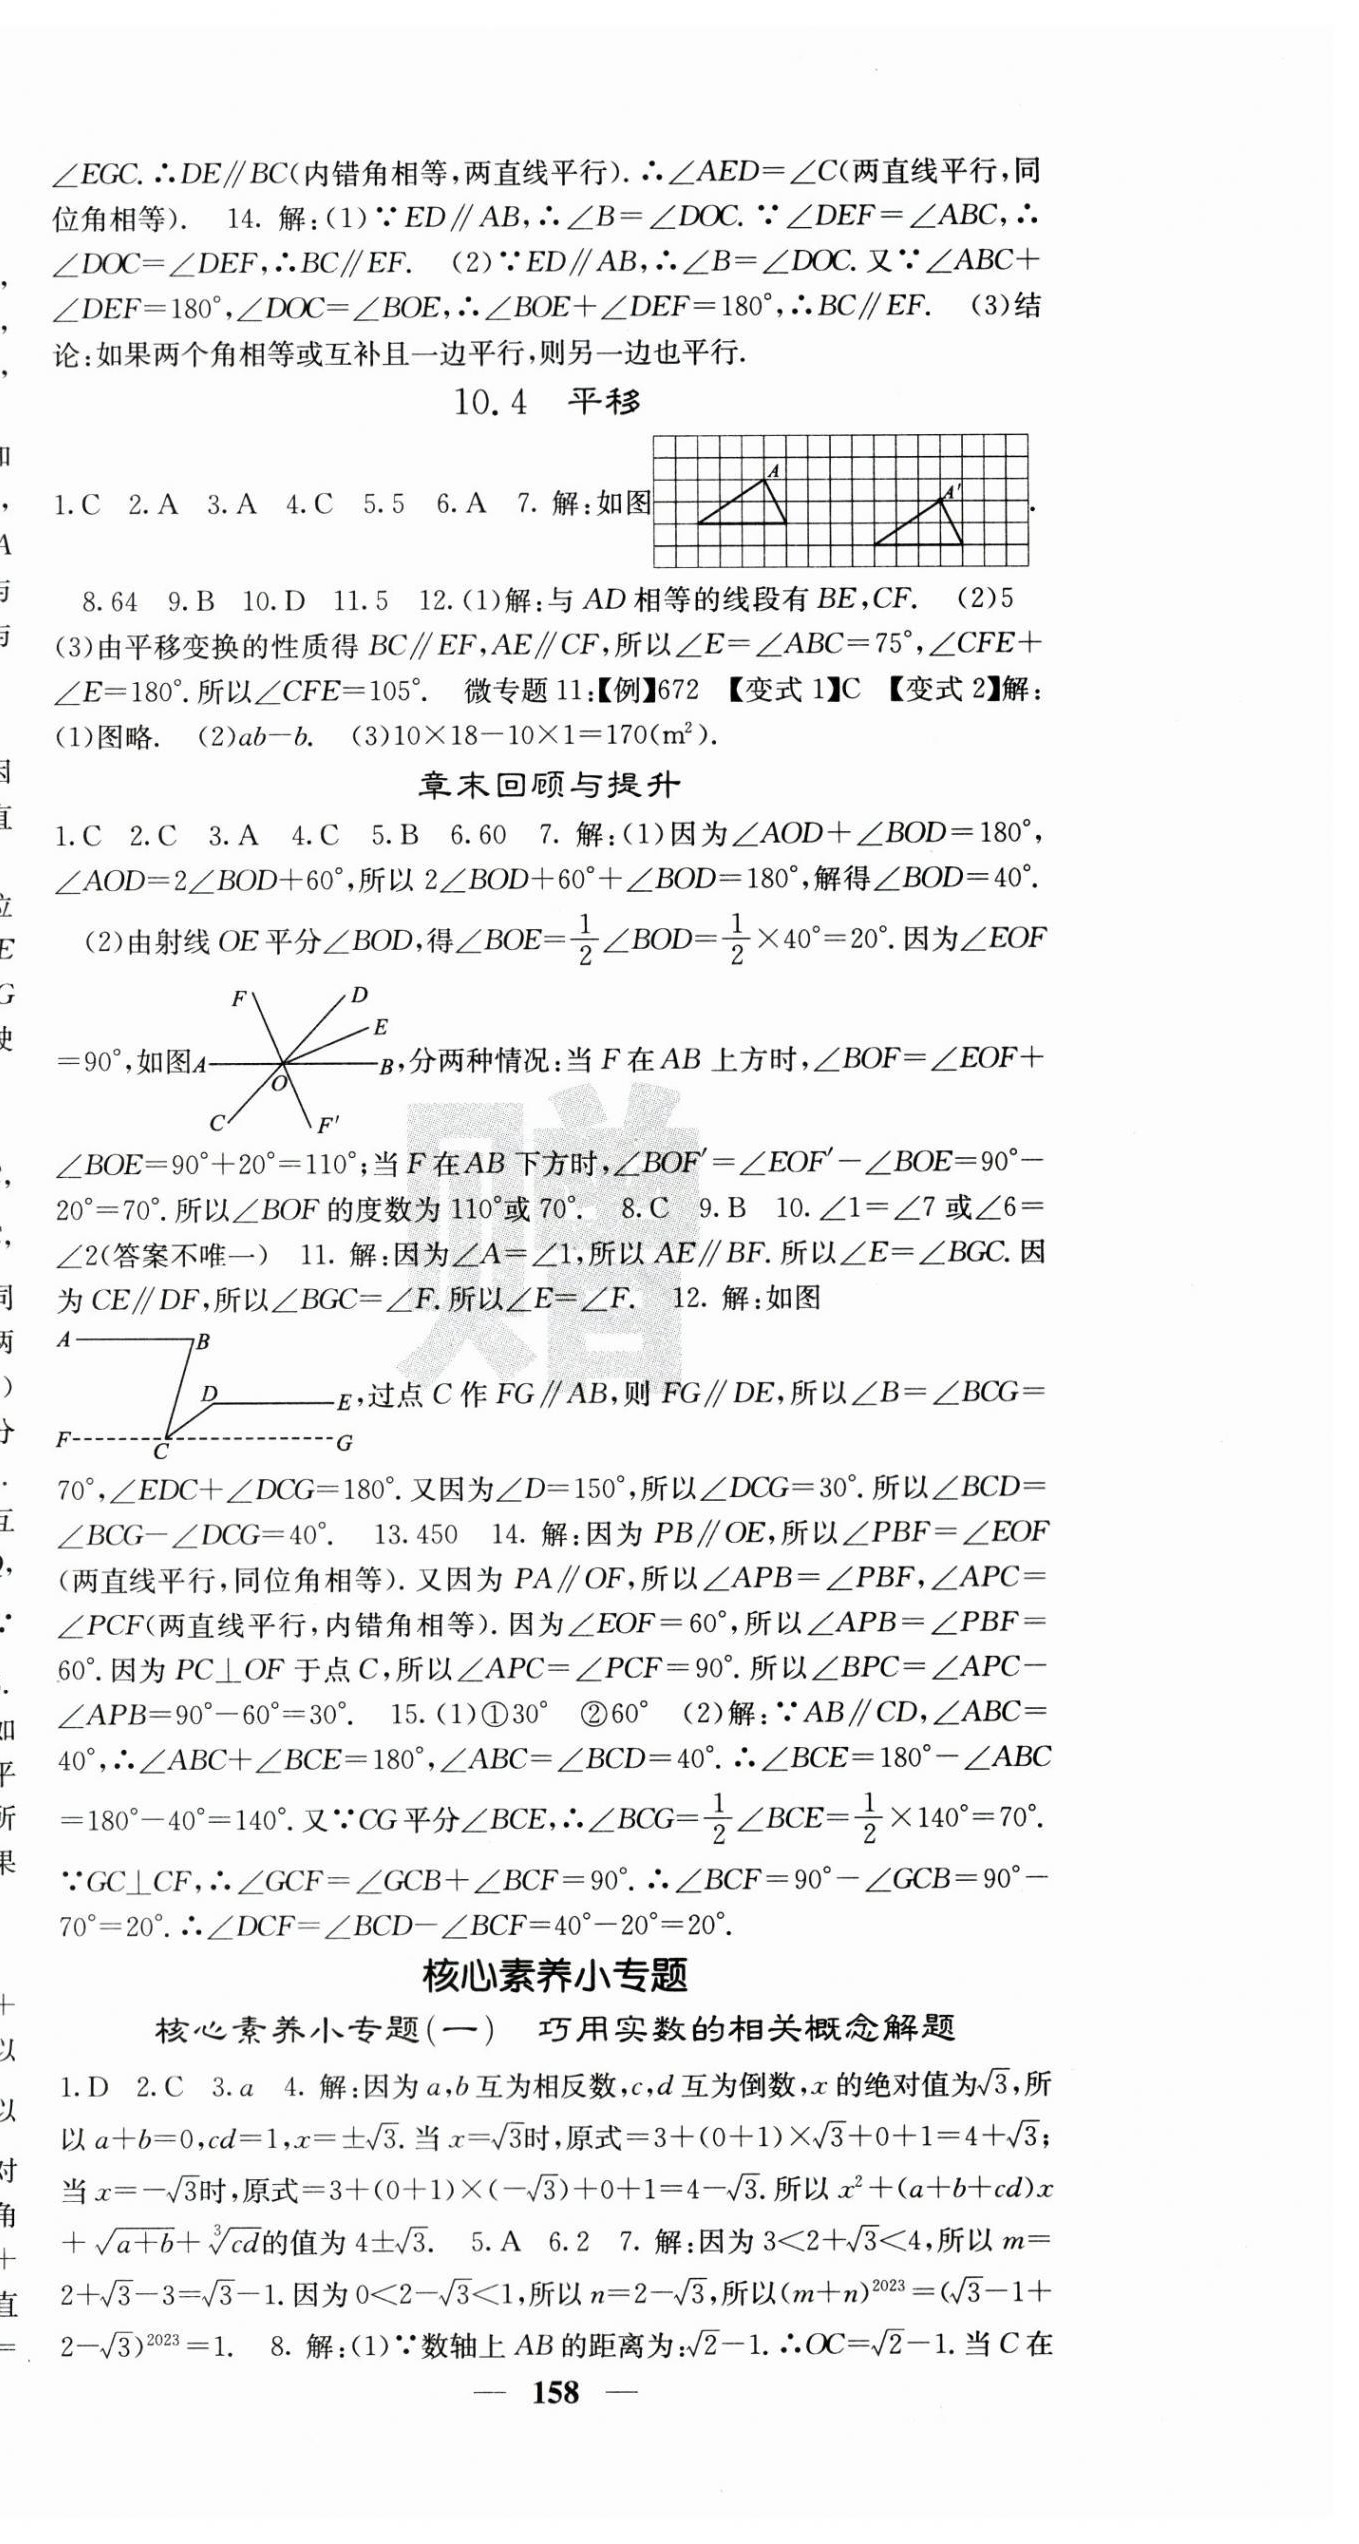 ∠EGC.∴DE∥BC(内错角相等,两直线平行).∴∠AED=∠C(两直线平行,同
位角相等). 14. 解:(1)∵ED∥AB,∴∠B=∠DOC.∵∠DEF=∠ABC,∴
∠DOC=∠DEF,∴BC∥EF. (2)∵ED∥AB,∴∠B=∠DOC.又∵∠ABC+
∠DEF=180°,∠DOC=∠BOE,∴∠BOE+∠DEF=180°,∴BC∥EF. (3)结
论:如果两个角相等或互补且一边平行,则另一边也平行.
10.4 平移
1.C 2.A 3.A 4.C 5.5 6.A 7. 解:如图
A
A′
.
8.64 9.B 10.D 11.5 12.(1)解:与AD相等的线段有BE,CF. (2)5
(3)由平移变换的性质得BC∥EF,AE∥CF,所以∠E=∠ABC=75°,∠CFE+
∠E=180°.所以∠CFE=105°. 微专题11:【例】672 【变式1】C 【变式2】解:
(1)图略. (2)ab-b. (3)10×18-10×1=170(m²).
章末回顾与提升
1.C 2.C 3.A 4.C 5.B 6.60 7. 解:(1)因为∠AOD+∠BOD=180°,
∠AOD=2∠BOD+60°,所以2∠BOD+60°+∠BOD=180°,解得∠BOD=40°.
(2)由射线OE平分∠BOD,得∠BOE=1/2∠BOD=1/2×40°=20°.因为∠EOF
F D
E
=90°,如图A B,分两种情况:当F在AB上方时,∠BOF=∠EOF+
O
C F′
∠BOE=90°+20°=110°;当F在AB下方时,∠BOF′=∠EOF′-∠BOE=90°-
20°=70°.所以∠BOF的度数为110°或70°. 8.C 9.B 10.∠1=∠7或∠6=
∠2(答案不唯一) 11. 解:因为∠A=∠1,所以AE∥BF.所以∠E=∠BGC.因
为CE∥DF,所以∠BGC=∠F.所以∠E=∠F. 12. 解:如图
A B
D
E,过点C作FG∥AB,则FG∥DE,所以∠B=∠BCG=
F C G
70°,∠EDC+∠DCG=180°.又因为∠D=150°,所以∠DCG=30°.所以∠BCD=
∠BCG-∠DCG=40°. 13.450 14. 解:因为PB∥OE,所以∠PBF=∠EOF
(两直线平行,同位角相等).又因为PA∥OF,所以∠APB=∠PBF,∠APC=
∠PCF(两直线平行,内错角相等).因为∠EOF=60°,所以∠APB=∠PBF=
60°.因为PC⊥OF于点C,所以∠APC=∠PCF=90°.所以∠BPC=∠APC-
∠APB=90°-60°=30°. 15.(1)①30° ②60° (2)解:∵AB∥CD,∠ABC=
40°,∴∠ABC+∠BCE=180°,∠ABC=∠BCD=40°.∴∠BCE=180°-∠ABC
=180°-40°=140°.又∵CG平分∠BCE,∴∠BCG=1/2∠BCE=1/2×140°=70°.
∵GC⊥CF,∴∠GCF=∠GCB+∠BCF=90°.∴∠BCF=90°-∠GCB=90°-
70°=20°.∴∠DCF=∠BCD-∠BCF=40°-20°=20°.
核心素养小专题
核心素养小专题(一) 巧用实数的相关概念解题
1.D 2.C 3.a 4. 解:因为a,b互为相反数,c,d互为倒数,x的绝对值为√3,所
以a+b=0,cd=1,x=±√3.当x=√3时,原式=3+(0+1)×√3+0+1=4+√3;
当x=-√3时,原式=3+(0+1)×(-√3)+0+1=4-√3.所以x²+(a+b+cd)x
+√(a+b)+∛(cd)的值为4±√3. 5.A 6.2 7. 解:因为3<2+√3<4,所以m=
2+√3-3=√3-1.因为0<2-√3<1,所以n=2-√3,所以(m+n)²⁰²³=(√3-1+
2-√3)²⁰²³=1. 8. 解:(1)∵数轴上AB的距离为:√2-1.∴OC=√2-1.当C在
— 158 —
赠